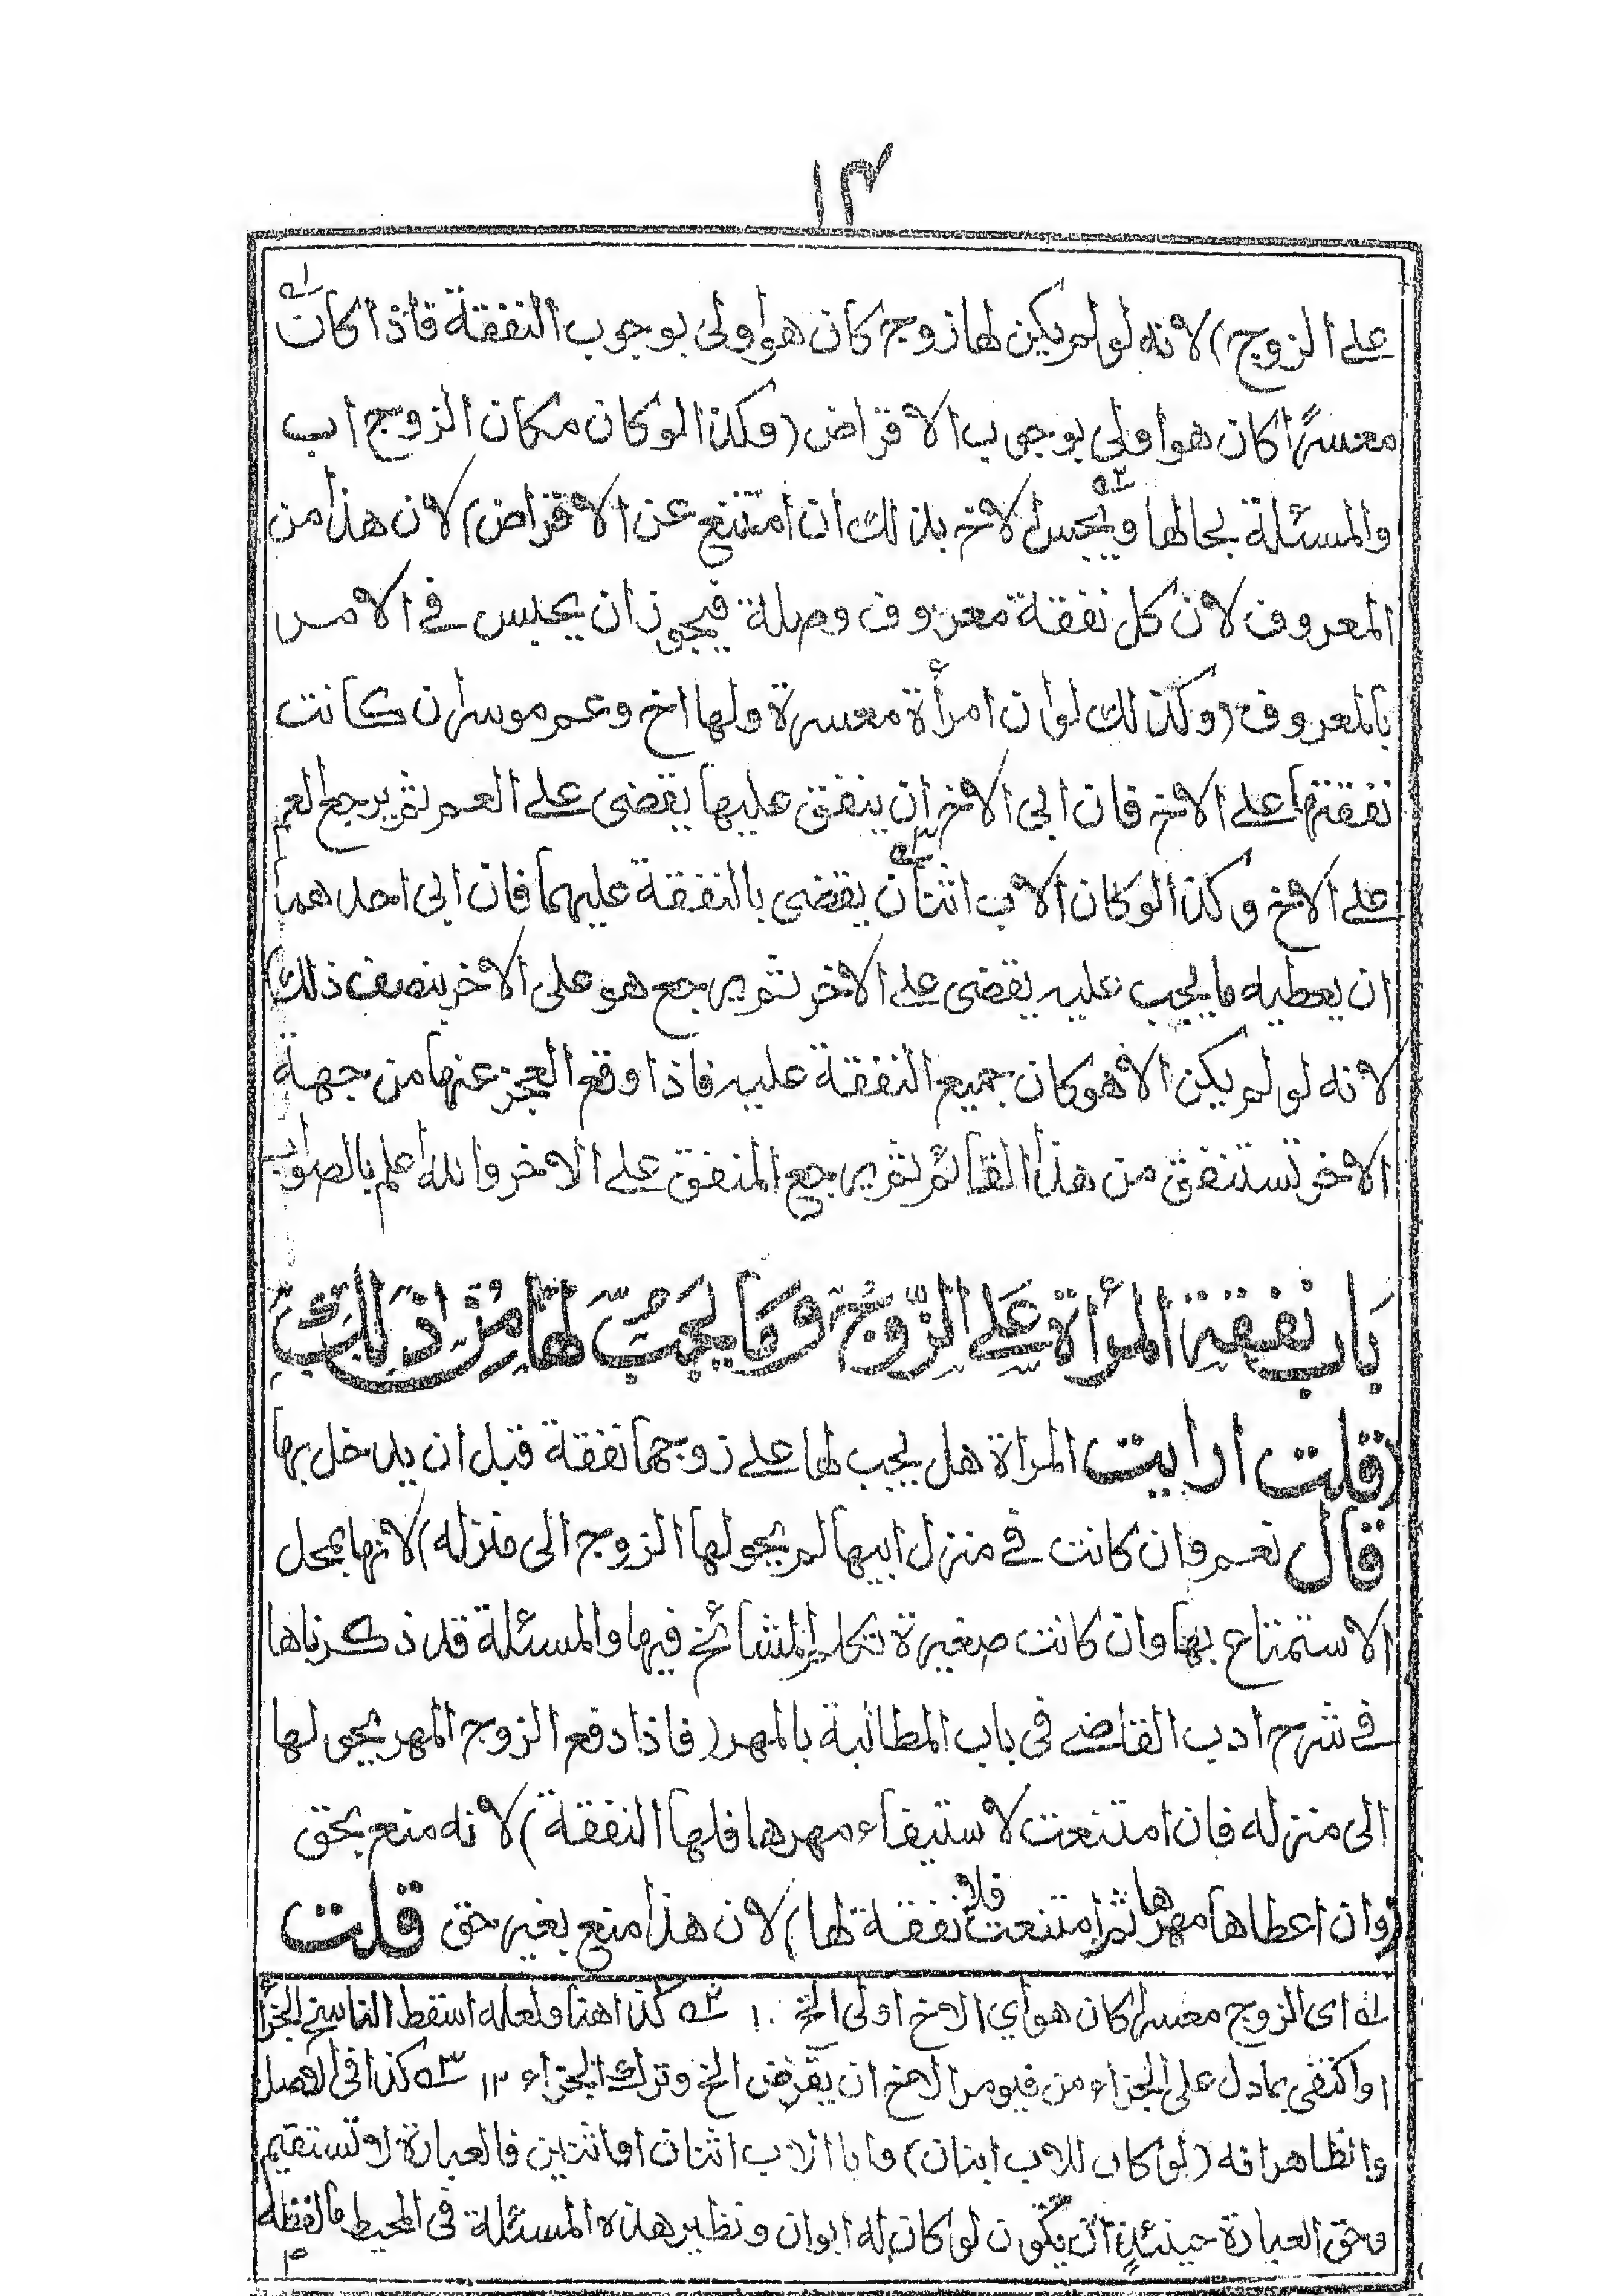 ١٣
على الزوج) لانه لو لم يكن لها زوج كان هو اولى بوجوب النفقة فاذا كان له١
معسرًا كان هو اولى بوجوب الاقراض (وكذا لو كان مكان الزوج اب
والمسئلة بحالها ويحبس له٢ الاخ بذلك ان امتنع عن الاقراض) لان هذا من
المعروف لان كل نفقة معروف وصلة فيجوز ان يحبس فى الامر
بالمعروف (وكذلك لو أن امرأة معسرة ولها اخ وعم موسران كانت
نفقتها على الاخ فان ابى الاخ ان ينفق عليها يقضى على العم ثم يرجع العم
على الاخ وكذا لو كان الاب اثنان له٣ يقضى بالنفقة عليهما فان ابى احدهما
ان يعطيه ما يجب عليه يقضى على الاخر ثم يرجع هو على الاخر بنصف ذلك)
لانه لو لم يكن الا هو كان جميع النفقة عليه فاذا وقع العجز عنها من جهة
الاخر تستنفق من هذا القائم ثم يرجع المنفق على الاخر والله اعلم بالصواب
بَاب نفقة المرأة عَلى الزّوج وَمَا يجبُ لهَا مِنْ ذٰلِكَ
(قلت ارايت المراة هل يجب لها على زوجها نفقة قبل ان يدخل بها
قال نعم وان كانت فى منزل ابيها لم يحولها الزوج الى منزله) لانها بمحل
الاستمتاع بها وان كانت صغيرة تكلم المشائخ فيها والمسئلة قد ذكرناها
فى شرح ادب القاضى فى باب المطالبة بالمهر (فاذا دفع الزوج المهر يحولها
الى منزله فان امتنعت لاستيفاء مهرها فلها النفقة) لانه منع بحق
(وان اعطاها مهرها ثم امتنعت فلا نفقة لها) لان هذا منع بغير حق قلت
له١ اى الزوج معسرا كان هو أي الاخ اولى الخ ١٠ له٢ كذا هنا ولعله اسقط الناسخ الجزأ
او اكتفى بما دل على الجزاء من فيومر الاخ ان يقرض الخ وترك الجزاء ١٢ له٣ كذا فى الاصل
والظاهر انه (لو كان للاب ابنان) واما الاب اثنان او اثنتين فالعبارة لا تستقيم
وحق العبارة حينئذٍ ان يكون لو كان له ابوان ونظير هذه المسئلة فى المحيط ما لفظه